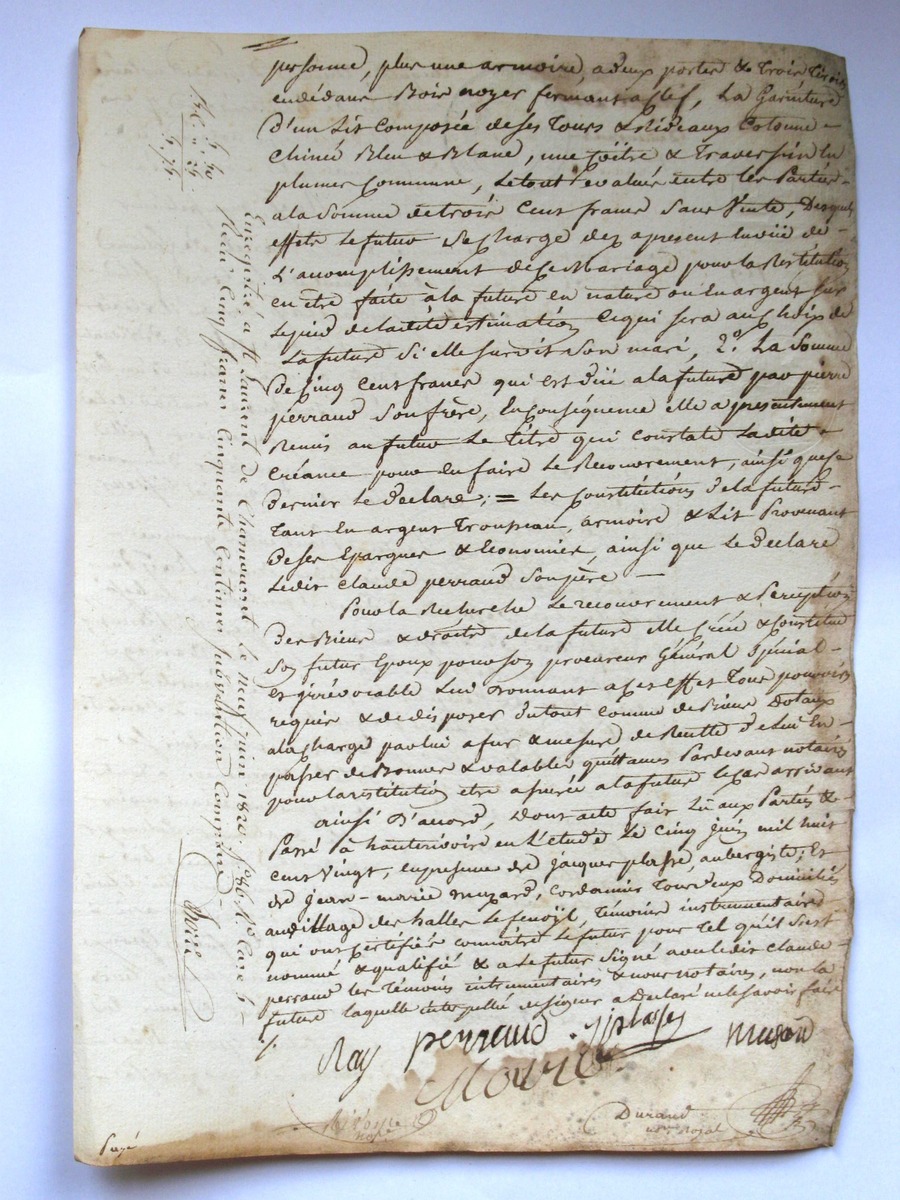 personne, plus une armoire, a deux portes & trois tiroirs
en dédans Bois noyer fermant a clef, La Garniture
d'un Lit Composée de ses Tours & Rideaux Cotonne
Chiné Bleu & Blanc, une Coëtre & Traversin en
plumes commune, Le tout évalué entre les Parties
a la somme de trois Cent francs sans Vente, Desquels
effets Le futur se charge dez apresent en vüe de
L'acomplissement de ce Mariage pour la Restitution
en être faite à la future en nature ou En argent sur
le pied de la dite estimation, Ce qui sera au choix de
La future si elle survit a son mari, 2.° La somme
De Cinq Cent francs qui est düe a la future par pierre
perraud son frère, En conséquence elle a présentement
Remis au futur Le titre qui constate La dite
Créance pour En faire Le Recouvrement, ainsi que ce
Dernier Le Déclare; = Les Constitutions de la future
Tant En argent Trousseau, armoire & Lit Provenant
De ses Epargnes & Economies, ainsi que Le déclare
Ledit Claude perraud son père —
Pour la Recherche Le recouvrement & Perception
Des Biens & droits de la future elle Créé & Constitue
Son futur Epoux pour son procureur Général Spécial
Et irrévocable Lui Donnant a Cet effet Tous pouvoirs
requis & de disposer du tout comme de Biens Dotaux
a la charge par lui a fur & mesure de Recette d'elui En
passer de Bonnes & valables quittances Pardevant notaires
pour la restitution etre assurée a la future le Cas arrivant
ainsi D'acord, Dont acte fait Lu aux Parties &
Passé à hauterivoire en L'etude Le Cinq juin mil huit
cent Vingt, en presence de jacques plasse, aubergiste; Et
de jean-marie muzard, Cordonnier Tous deux Domiciliés
au village des halles Le fenoÿl, Témoins instrumentaires
qui ont Certifiés connoitre Le futur pour Tel qu'il s'est
nommé & qualifié & a Le futur Signé avec ledit Claude
perraud les Témoins instrumentaires & nous notaires, non la
future laquelle interpellée de signer a Déclaré ne le savoir faire
Ray perraud j plasse muzard
Durand
n.re Royal
Enregistré à St Laurent de Chamousset le neuf juin 1820. f.° 86 R.° Case 5
Reçu Cinq francs Cinquante Centimes Subvention Comprise
5. 50